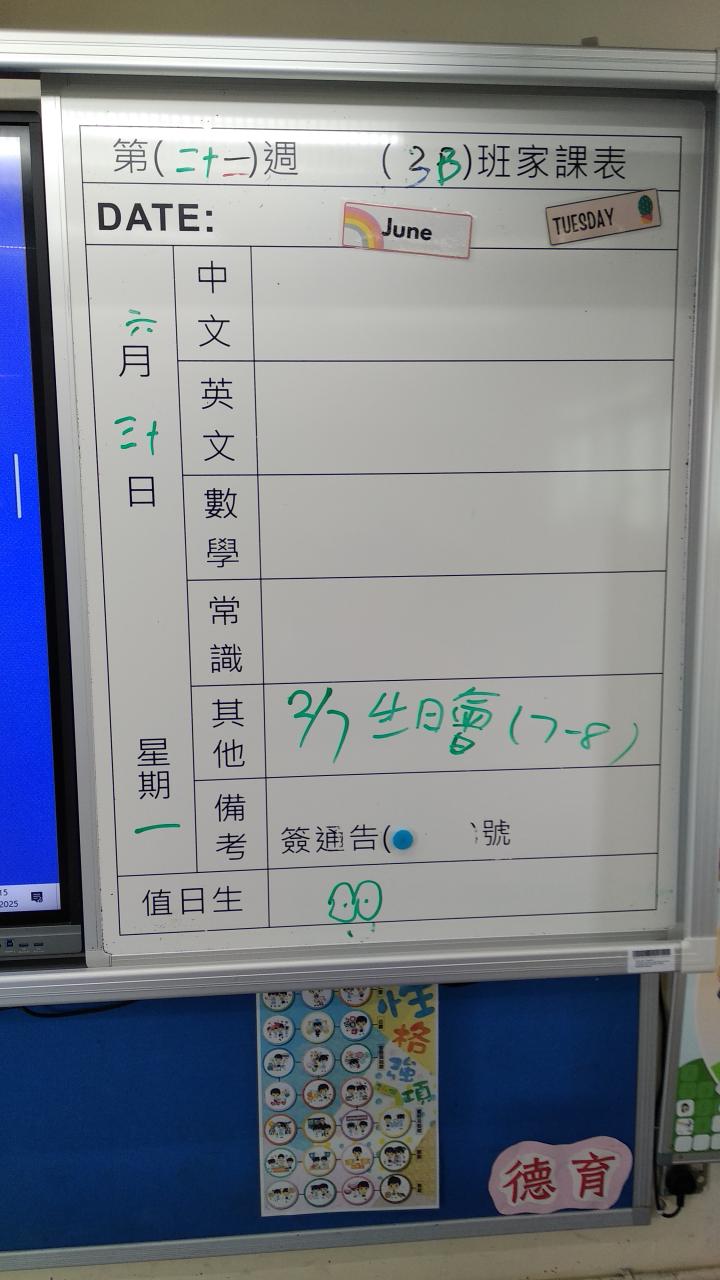 第(二十一)週 (3B)班家課表
DATE: June TUESDAY
六月三十日
星期一
中文
英文
數學
常識
其他 2/7 生日會(7-8)
備考 簽通告( )號
值日生
15
2025
性格強項
德育